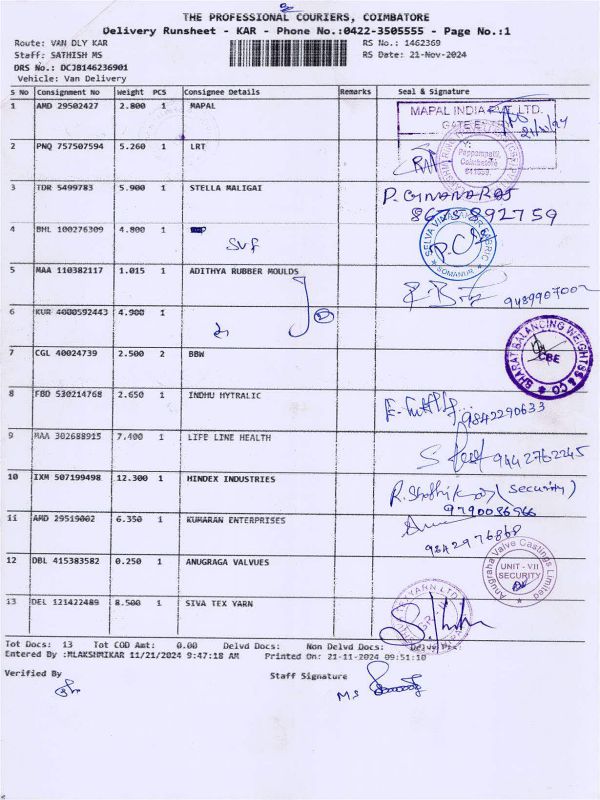 THE PROFESSIONAL COURIERS, COIMBATORE
Delivery Runsheet - KAR - Phone No.:0422-3505555 - Page No.:1
Route: VAN DLY KAR RS No.: 1462369
Staff: SATHISH MS RS Date: 21-Nov-2024
DRS No.: DCJB146236901
Vehicle: Van Delivery
S No Consignment No Weight PCS Consignee Details Remarks Seal & Signature
1 AMD 29502427 2.800 1 MAPAL
MAPAL INDIA PVT. LTD.
GATE
2 PNQ 757507594 5.260 1 LRT
Pappampatti,
Coimbatore
641659
3 TDR 5499783 5.900 1 STELLA MALIGAI
P. GNANARAJ
8675892759
4 BHL 100276309 4.800 1
SVF
SELVA FABRIC
SOMANUR
5 MAA 110382117 1.015 1 ADITHYA RUBBER MOULDS
9489907002
6 KUR 4000592443 4.900 1
7 CGL 40024739 2.500 2 BBW
BHARAT BALANCING WEIGHTSS & CO
CBE
8 FBD 530214768 2.650 1 INDHU HYTRALIC
9842290633
9 MAA 302688915 7.400 1 LIFE LINE HEALTH
9442762245
10 IXM 507199498 12.300 1 HINDEX INDUSTRIES
(Security)
9790036966
11 AMD 29519002 6.350 1 KUMARAN ENTERPRISES
9842976868
12 DBL 415383582 0.250 1 ANUGRAGA VALVUES
Anugraha Valve Castings Limited
UNIT - VII
SECURITY
13 DEL 121422489 8.500 1 SIVA TEX YARN
YARN LTD
Tot Docs: 13 Tot COD Amt: 0.00 Delvd Docs: Non Delvd Docs: Delvd Pcs:
Entered By :MLAKSHMIKAR 11/21/2024 9:47:18 AM Printed On: 21-11-2024 09:51:10
Verified By Staff Signature
MS